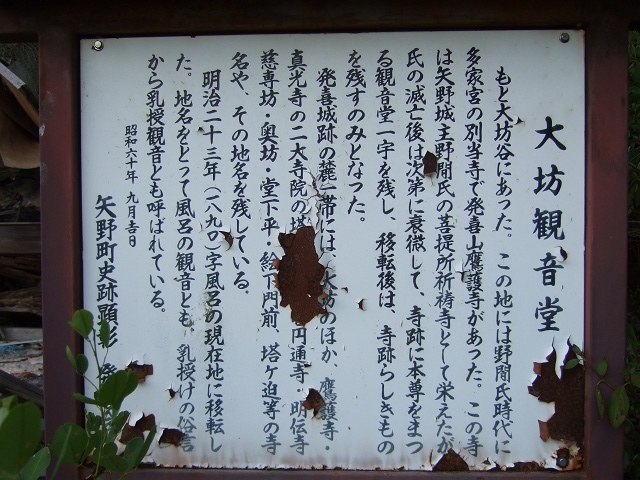 大坊観音堂
もと大坊谷にあった。この地には野間氏時代に
多家宮の別当寺で発喜山鷹護寺があった。この寺
は矢野城主野間氏の菩提所祈祷寺として栄えたが
氏の滅亡後は次第に衰微して、寺跡に本尊をまつ
る観音堂一宇を残し、移転後は、寺跡らしきもの
を残すのみとなった。
発喜城跡の麓一帯には、大坊のほか、鷹護寺・
真光寺の二大寺院の塔 円通寺・明伝寺
慈専坊・奥坊・堂下平・絵下門前、塔ケ迫等の寺
名や、その地名を残している。
明治二十三年(一八九〇)字風呂の現在地に移転し
た。地名をとって風呂の観音とも、乳授けの俗言
から乳授観音とも呼ばれている。
昭和六十年 九月吉日
矢野町史跡顕彰